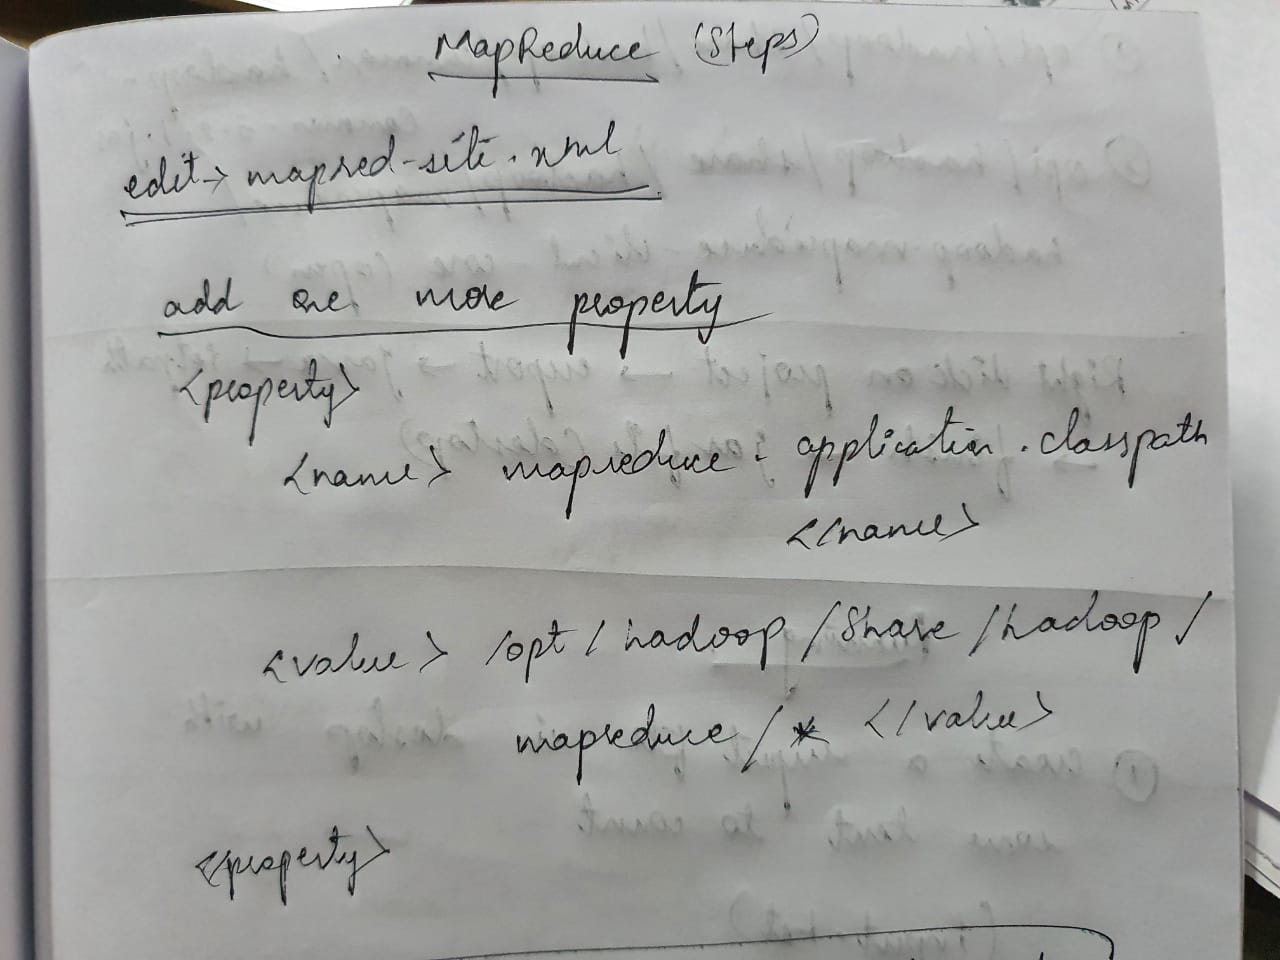 MapReduce (Steps)
edit→ mapred-site.xml
add one more property
<property>
<name> mapreduce.application.classpath
</name>
<value> /opt/hadoop/share/hadoop/
mapreduce/* </value>
<property>